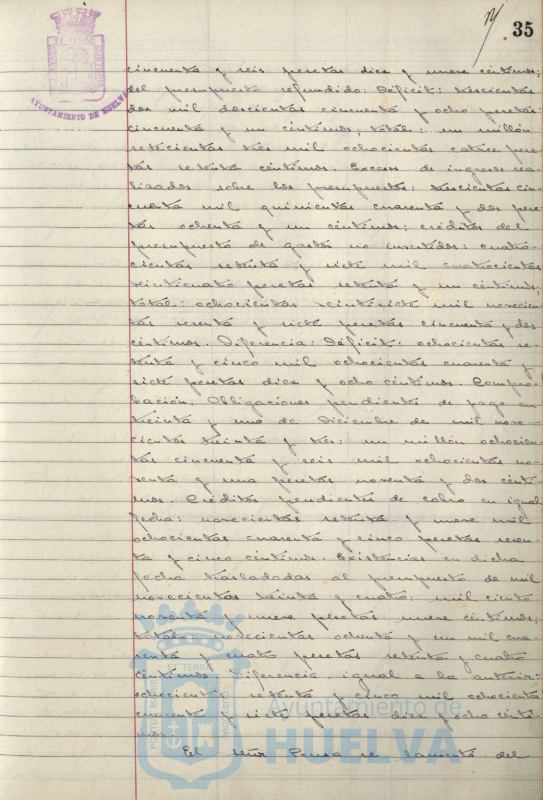 35
AYUNTAMIENTO DE HUELVA
cincuenta y seis pesetas diez y nueve céntimos;
del presupuesto refundido: Déficit: trescientas
dos mil doscientas cincuenta y ocho pesetas
cincuenta y un céntimos; total: un millón
setecientas tres mil ochocientas catorce pese-
tas setenta céntimos. Excesos de ingresos rea-
lizados sobre los presupuestos: trescientas cin-
cuenta mil quinientas cuarenta y dos pese-
tas ochenta y un céntimos; créditos del
presupuesto de gastos no invertidos: cuatro-
cientas setenta y siete mil cuatrocientas
veinticuatro pesetas setenta y un céntimos;
total: ochocientas veintisiete mil novecien-
tas sesenta y siete pesetas cincuenta y dos
céntimos. Diferencia: Déficit: ochocientas se-
tenta y cinco mil ochocientas cuarenta y
siete pesetas diez y ocho céntimos. Compro-
bación. Obligaciones pendientes de pago en
treinta y uno de Diciembre de mil nove-
cientos treinta y tres: un millón ochocien-
tas cincuenta y seis mil ochocientas no-
venta y una pesetas noventa y dos cénti-
mos. Créditos pendientes de cobro en igual
fecha: novecientas setenta y nueve mil
ochocientas cuarenta y cinco pesetas sesen-
ta y cinco céntimos. Existencias en dicha
fecha trasladadas al presupuesto de mil
novecientos treinta y cuatro: mil ciento
noventa y nueve pesetas nueve céntimos;
total: novecientas ochenta y un mil cua-
renta y cuatro pesetas setenta y cuatro
céntimos. Diferencia igual a la anterior:
ochocientas setenta y cinco mil ochocientas
cuarenta y siete pesetas diez y ocho cénti-
mos.
El señor se lamentó del
Ayuntamiento de
HUELVA